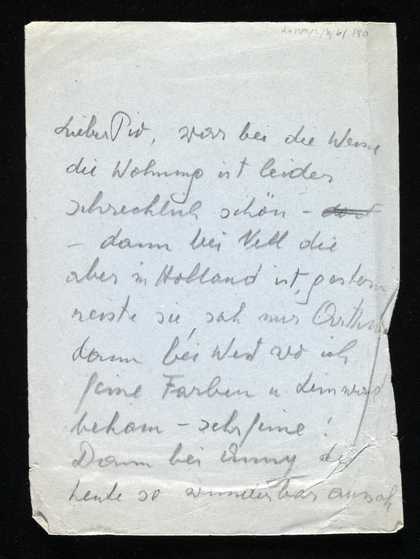 Lieber Pid, war bei die Weise
die Wohnung ist leider
schrecklich schön –
– dann bei Nell die
aber in Holland ist, gestern
reiste sie, sah nur
dann bei West wo ich
feine Farben u Leinwand
bekam – sehr feine!
Dann bei Enny die
heute so wunderbar aussah